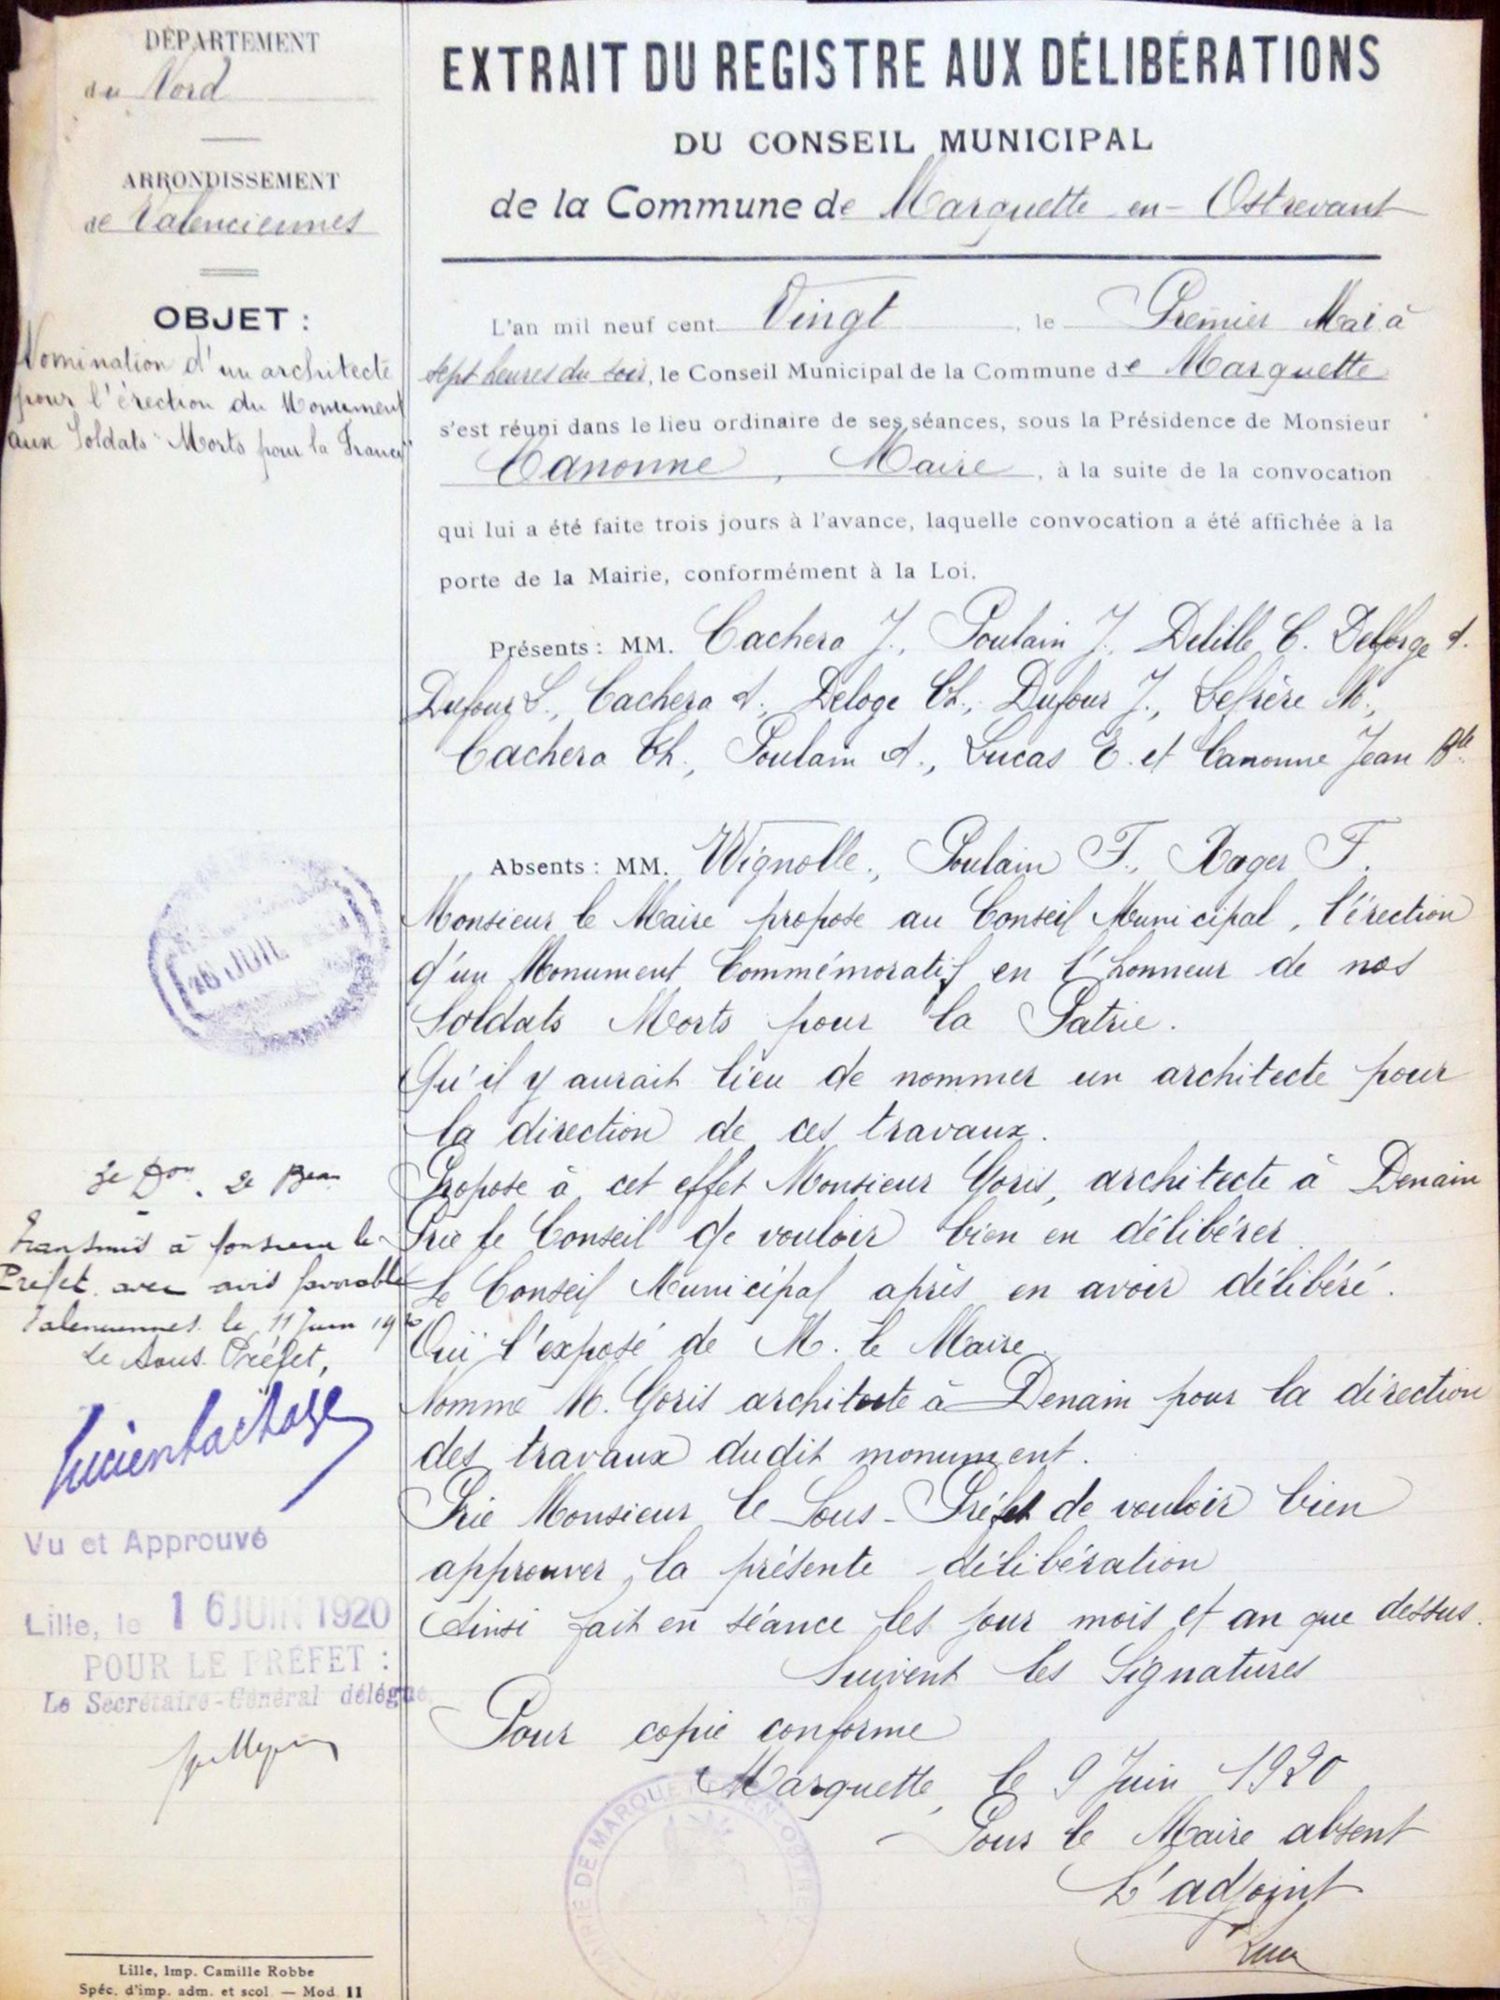 DÉPARTEMENT
du Nord
ARRONDISSEMENT
de Valenciennes
OBJET :
Nomination d'un architecte
pour l'érection du Monument
aux Soldats "Morts pour la France"
EXTRAIT DU REGISTRE AUX DÉLIBÉRATIONS
DU CONSEIL MUNICIPAL
de la Commune de Marquette en-Ostrevant
L'an mil neuf cent Vingt, le Premier Mai à
sept heures du soir, le Conseil Municipal de la Commune de Marquette
s'est réuni dans le lieu ordinaire de ses séances, sous la Présidence de Monsieur
Canonne, Maire, à la suite de la convocation
qui lui a été faite trois jours à l'avance, laquelle convocation a été affichée à la
porte de la Mairie, conformément à la Loi.
Présents : MM. Cachera J., Poulain J., Delille C. Delforge A.
Dufour L., Cachera A., Deloge Ch., Dufour J., Lefrère M.,
Cachera Ch., Poulain A., Lucas E. et Canonne Jean Bte
Absents : MM. Wignolle., Poulain F., Rager F.
Monsieur le Maire propose au Conseil Municipal, l'érection
d'un Monument Commémoratif en l'honneur de nos
Soldats Morts pour la Patrie.
Qu'il y aurait lieu de nommer un architecte pour
la direction de ces travaux.
Propose à cet effet Monsieur Goris, architecte à Denain
Prie le Conseil de vouloir bien en délibérer
Le Conseil Municipal après en avoir délibéré.
Ouï l'exposé de M. le Maire
Nomme M. Goris architecte à Denain pour la direction
des travaux dudit monument.
Prie Monsieur le Sous-Préfet de vouloir bien
approuver la présente délibération
Ainsi fait en séance les jour mois et an que dessus.
Suivent les Signatures
Pour copie conforme
Marquette, le 9 Juin 1920
Pour le Maire absent
L'adjoint
MAIRIE DE MARQUETTE-EN-OSTREV
26 JUIL
2e Don. 2e Beau
Transmis à Monsieur le
Préfet avec avis favorable
Valenciennes le 11 Juin 1920
Le Sous-Préfet,
Vu et Approuvé
Lille, le 16 JUIN 1920
POUR LE PRÉFET :
Le Secrétaire-Général délégué
Lille, Imp. Camille Robbe
Spéc. d'imp. adm. et scol. — Mod. 11